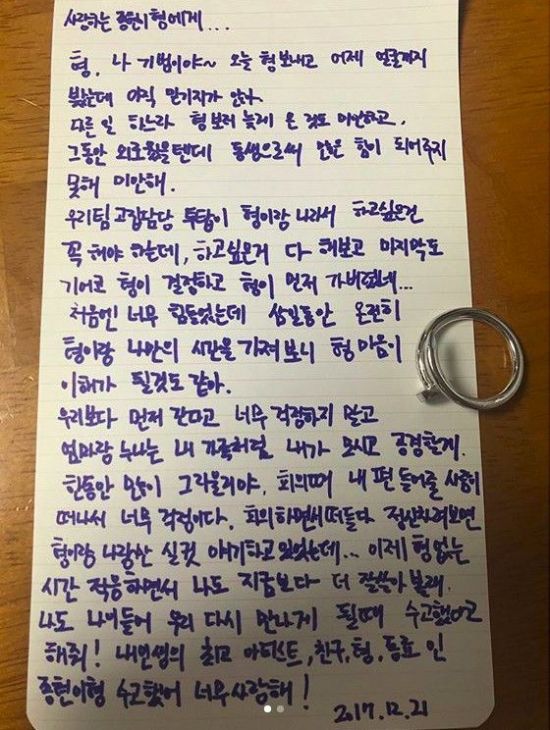 사랑하는 종현이형에게...
형. 나 기범이야~ 오늘 형 보내고 어제 얼굴까지
봤는데 아직 믿기지가 않아.
다른 일 하느라 형 보러 늦게 온 것도 미안하고,
그동안 외로웠을텐데 동생으로써 많은 힘이 되어주지
못해 미안해.
우리팀 고집담당 투탑이 형이랑 나라서 하고싶은건
꼭 해야 하는데, 하고싶은거 다 해보고 마지막도
기어코 형이 결정하고 형이 먼저 가버렸네...
처음엔 너무 힘들었는데 삼일동안 온전히
형이랑 나만의 시간을 가져보니 형 마음이
이해가 될것도 같아.
우리보다 먼저 간다고 너무 걱정하지 말고
엄마랑 누나는 내 가족처럼 내가 모시고 공경할게.
한동안 많이 그리울거야. 회의때 내 편 들어줄 사람이
떠나서 너무 걱정이다. 회의하면서 떠들다 정신차려보면
형이랑 나랑만 실컷 얘기하고 있었는데... 이제 형 없는
시간 적응하면서 나도 지금보다 더 잘 살아 볼래.
나도 나이들어 우리 다시 만나게 될때 수고했다고
해줘! 내 인생의 최고 아티스트, 친구, 형, 동료 인
종현이형 수고했어 너무 사랑해!
2017.12.21